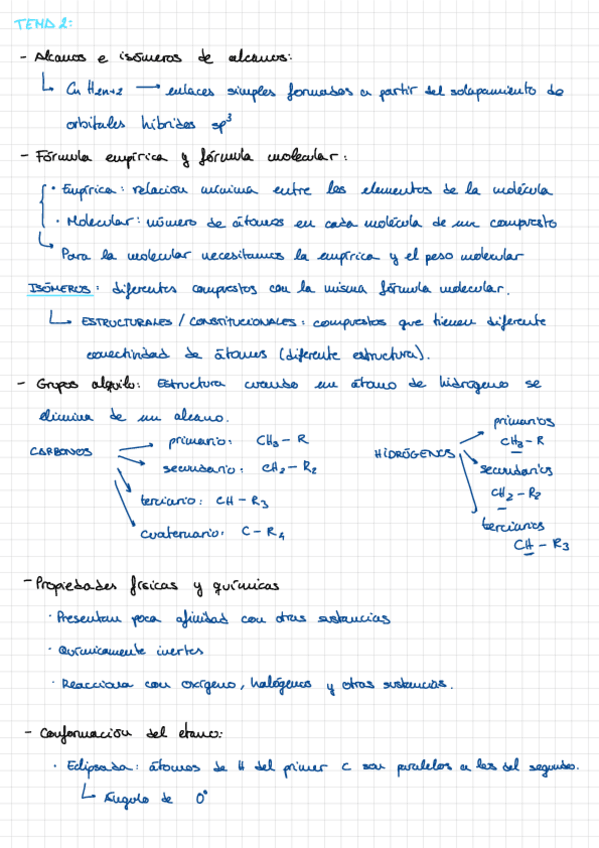 TEMA 2:
- Alcanos e isómeros de alcanos:
↳ Cn H2n+2 → enlaces simples formados a partir del solapamiento de
orbitales híbridos sp³
- Fórmula empírica y fórmula molecular:
· Empírica: relación mínima entre los elementos de la molécula
· Molecular: número de átomos en cada molécula de un compuesto
↳ Para la molecular necesitamos la empírica y el peso molecular
ISÓMEROS: diferentes compuestos con la misma fórmula molecular.
↳ ESTRUCTURALES / CONSTITUCIONALES: compuestos que tienen diferente
conectividad de átomos (diferente estructura).
- Grupos alquilo: Estructura cuando un átomo de hidrógeno se
elimina de un alcano.
CARBONOS
primario: CH3 - R
secundario: CH2 - R2
terciario: CH - R3
cuaternario: C - R4
HIDRÓGENOS
primarios
CH3 - R
secundarios
CH2 - R2
terciarios
CH - R3
- Propiedades físicas y químicas
· Presentan poca afinidad con otras sustancias
· Químicamente inertes
· Reacciona con oxígeno, halógenos y otras sustancias.
- Conformación del etano:
· Eclipsada: átomos de H del primer C son paralelos a los del segundo.
↳ Ángulo de 0°